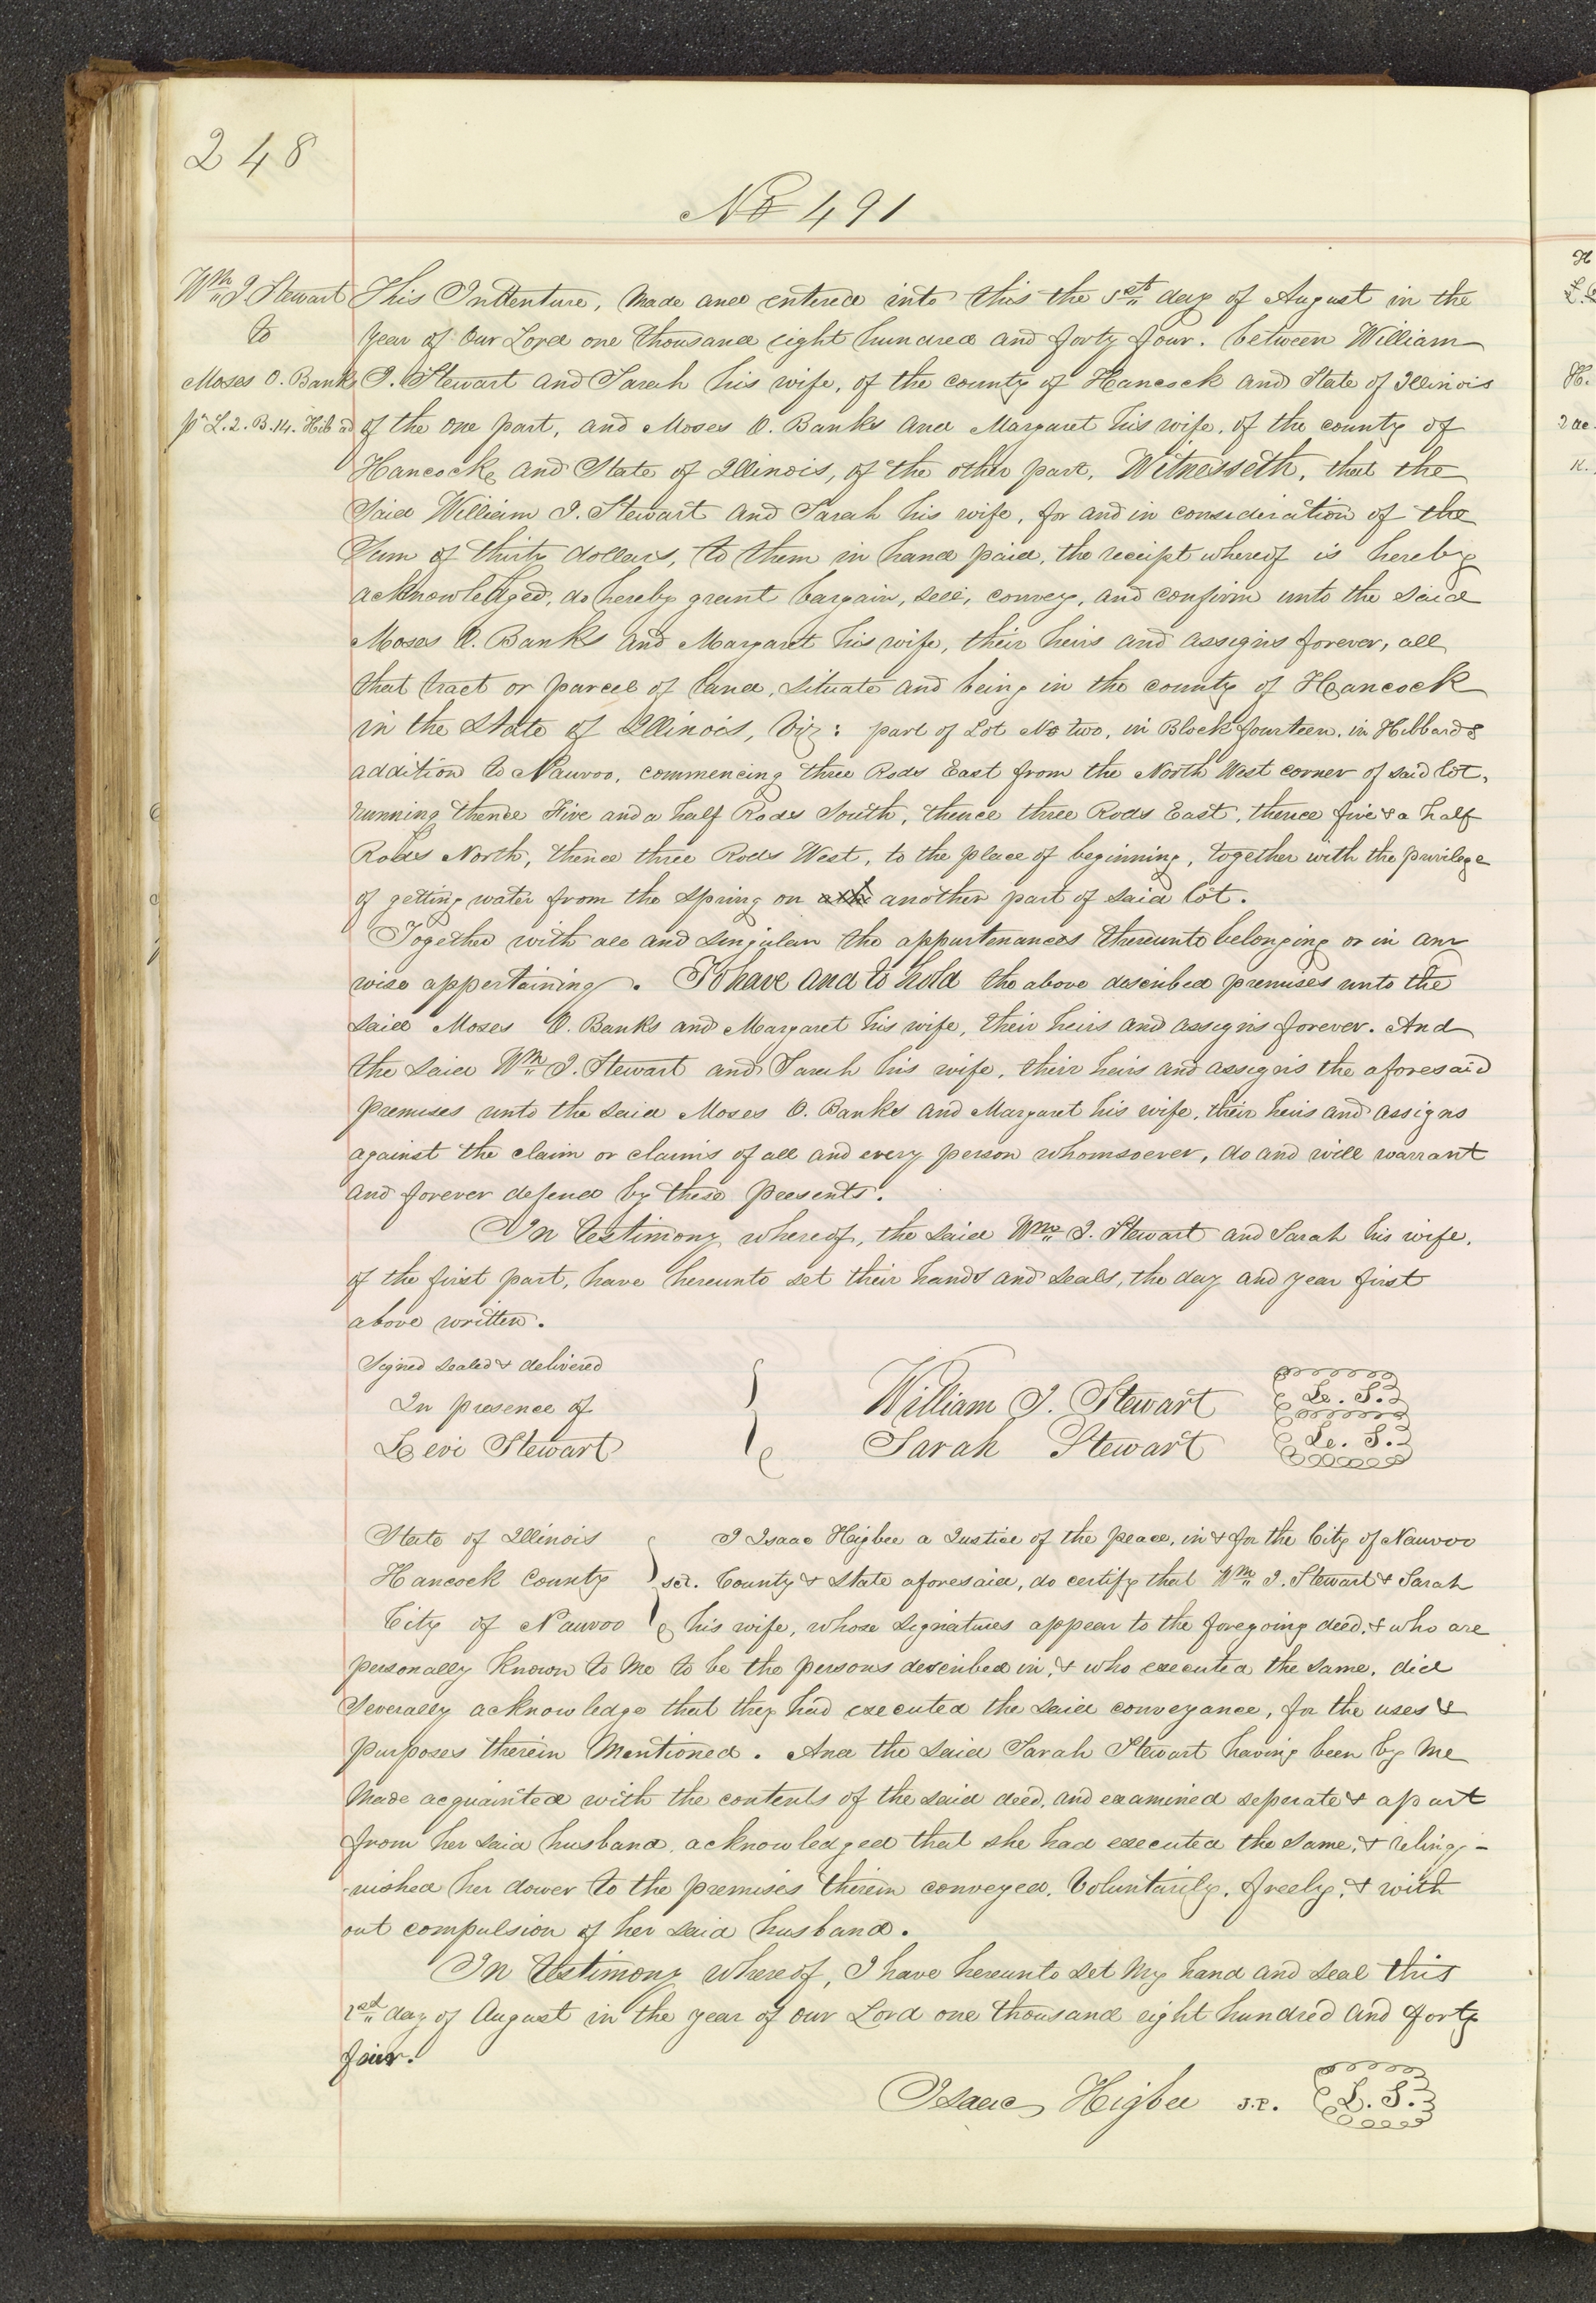 248
No 491
Wm J. Stewart
to
Moses O. Banks
pt L. 2. B. 14. Hib ad
This Indenture, Made and entered into this the 1st day of August in the
Year of Our Lord one thousand eight hundred and forty four. between William
J. Stewart and Sarah his wife, of the county of Hancock and State of Illinois
of the one part, and Moses O. Banks and Margaret his wife, of the county of
Hancock, and State of Illinois, of the other part, Witnesseth, that the
Said William J. Stewart and Sarah his wife, for and in consideration of the
Sum of thirty dollars, to them in hand paid, the receipt whereof is hereby
acknowledged, do hereby grant bargain, sell, convey, and confirm unto the said
Moses O. Banks and Margaret his wife, their heirs and assigns forever, all
that tract or parcel of land, situate and being in the county of Hancock
in the State of Illinois, Viz: part of Lot No two, in Block fourteen, in Hibbards
addition to Nauvoo, commencing three Rods East from the North West corner of said lot,
running thence Five and a half Rods South, thence three Rods East, thence five & a half
Rods North, thence three Rods West, to the place of beginning, together with the privilege
of getting water from the spring on another part of said lot.
Together with all and singular the appurtenances thereunto belonging or in any
wise appertaining. To have and to hold the above described premises unto the
said Moses O. Banks and Margaret his wife, their heirs and assigns forever. And
the said Wm J. Stewart and Sarah his wife, their heirs and assigns the aforesaid
premises unto the said Moses O. Banks and Margaret his wife, their heirs and assigns
against the claim or claims of all and every person whomsoever, do and will warrant
and forever defend by these presents.
In testimony whereof, the said Wm J. Stewart and Sarah his wife,
of the first part, have hereunto set their hands and seals, the day and year first
above written.
Signed sealed & delivered
In presence of
Levi Stewart
William J. Stewart L. S.
Sarah Stewart L. S.
State of Illinois
Hancock County sct.
City of Nauvoo
I Isaac Higbee a Justice of the peace, in & for the City of Nauvoo
County & State aforesaid, do certify that Wm J. Stewart & Sarah
his wife, whose signatures appear to the foregoing deed, & who are
personally known to me to be the persons described in, & who executed the same, did
severally acknowledge that they had executed the said conveyance, for the uses &
purposes therein Mentioned. And the said Sarah Stewart having been by me
Made acquainted with the contents of the said deed, and examined seperate & apart
from her said husband, acknowledged that she had executed the same, & relinq-
uished her dower to the premises therein conveyed, Voluntarily, freely, & with
out compulsion of her said husband.
In testimony whereof, I have hereunto set My hand and seal this
1st day of August in the year of our Lord one thousand eight hundred and forty
four.
Isaac Higbee J.P. L. S.